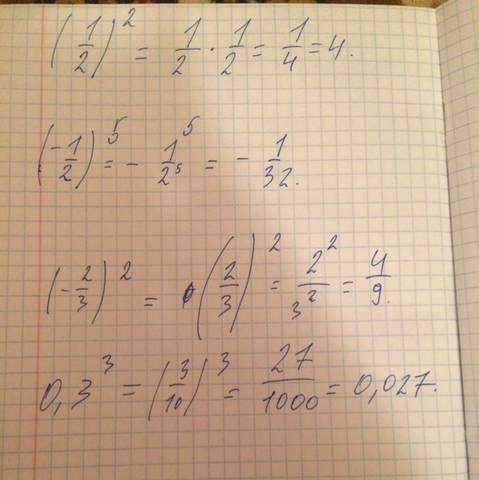 (1/2)² = 1/2 · 1/2 = 1/4 = 4.
(-1/2)⁵ = - 1⁵/2⁵ = - 1/32.
(-2/3)² = (2/3)² = 2²/3² = 4/9.
0,3³ = (3/10)³ = 27/1000 = 0,027.